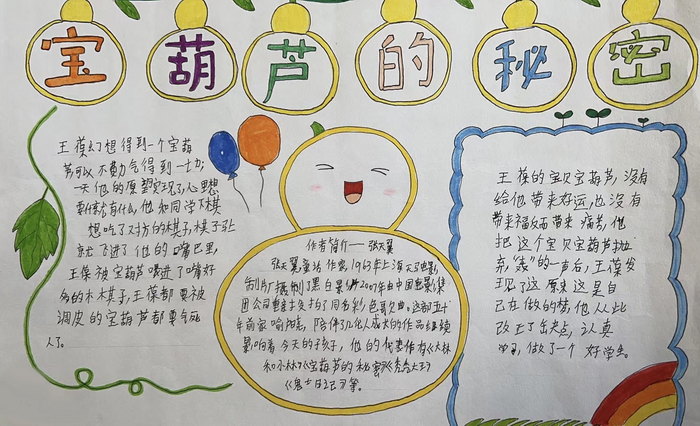 宝葫芦的秘密
王葆幻想得到一个宝葫
芦可以不费力气得到一切,
一天他的愿望实现了,心里想
要什么就有什么,他和同学下棋
想吃了对方的棋子,棋子马上
就飞进了他的嘴巴里,
王葆被宝葫芦喷进了嘴好
多的木棋子,王葆都要被
调皮的宝葫芦都要气死
人了。
作者简介——张天翼
张天翼童话作家,1963年上海天马电影
制片厂摄制了黑白影片,2007年由中国电影集
团公司重新投拍了同名彩色哥兄曲。这部五十
年前家喻户晓,陪伴了几代人成长的作品继续
影响着今天的孩子,他的代表作有《大林
和小林》《宝葫芦的秘密》《秃秃大王》
日记》等。
王葆的宝贝宝葫芦,没有
给他带来好运,也没有
带来福反而带来痛苦,他
把这个宝贝宝葫芦抛
弃,"轰"的一声后,王葆发
现了这原来这是自
己在做的梦,他从此
改上了出缺点,认真
学习,做了一个好学生。